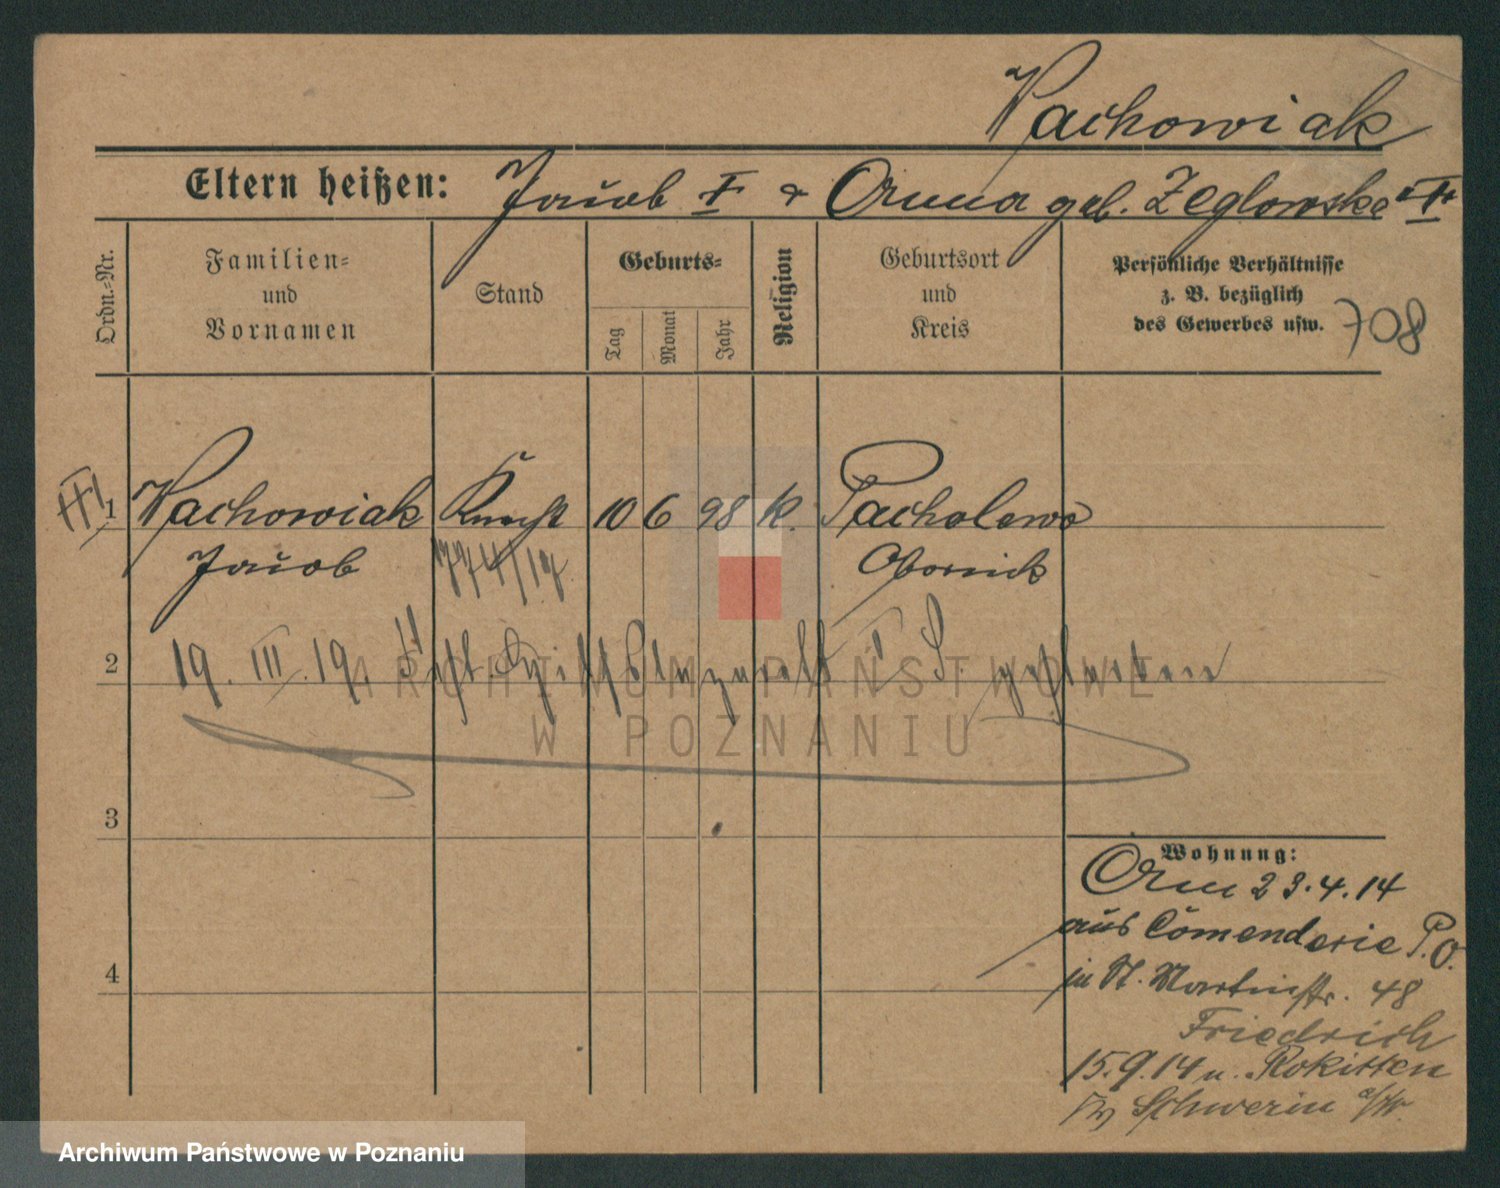 Wachowiak
Eltern heißen: Jakob † & Anna geb. Zeglowska †
Ordn.-Nr.
Familien-
und
Vornamen
Stand
Geburts-
Tag
Monat
Jahr
Religion
Geburtsort
und
Kreis
Persönliche Verhältnisse
z. B. bezüglich
des Gewerbes usw.
708
1 Wachowiak Knecht 10 6 98 k. Pacholewo
Jakob 774/17 Obornick
2 19. III. 19
3
4
Wohnung:
Anm 23.4.14
aus Comenderie P.O.
in St. Martinstr. 48
Friedrich
15.9.14 n. Rokitten
Schwerin a/W.
ARCHIWUM PAŃSTWOWE
W POZNANIU
Archiwum Państwowe w Poznaniu